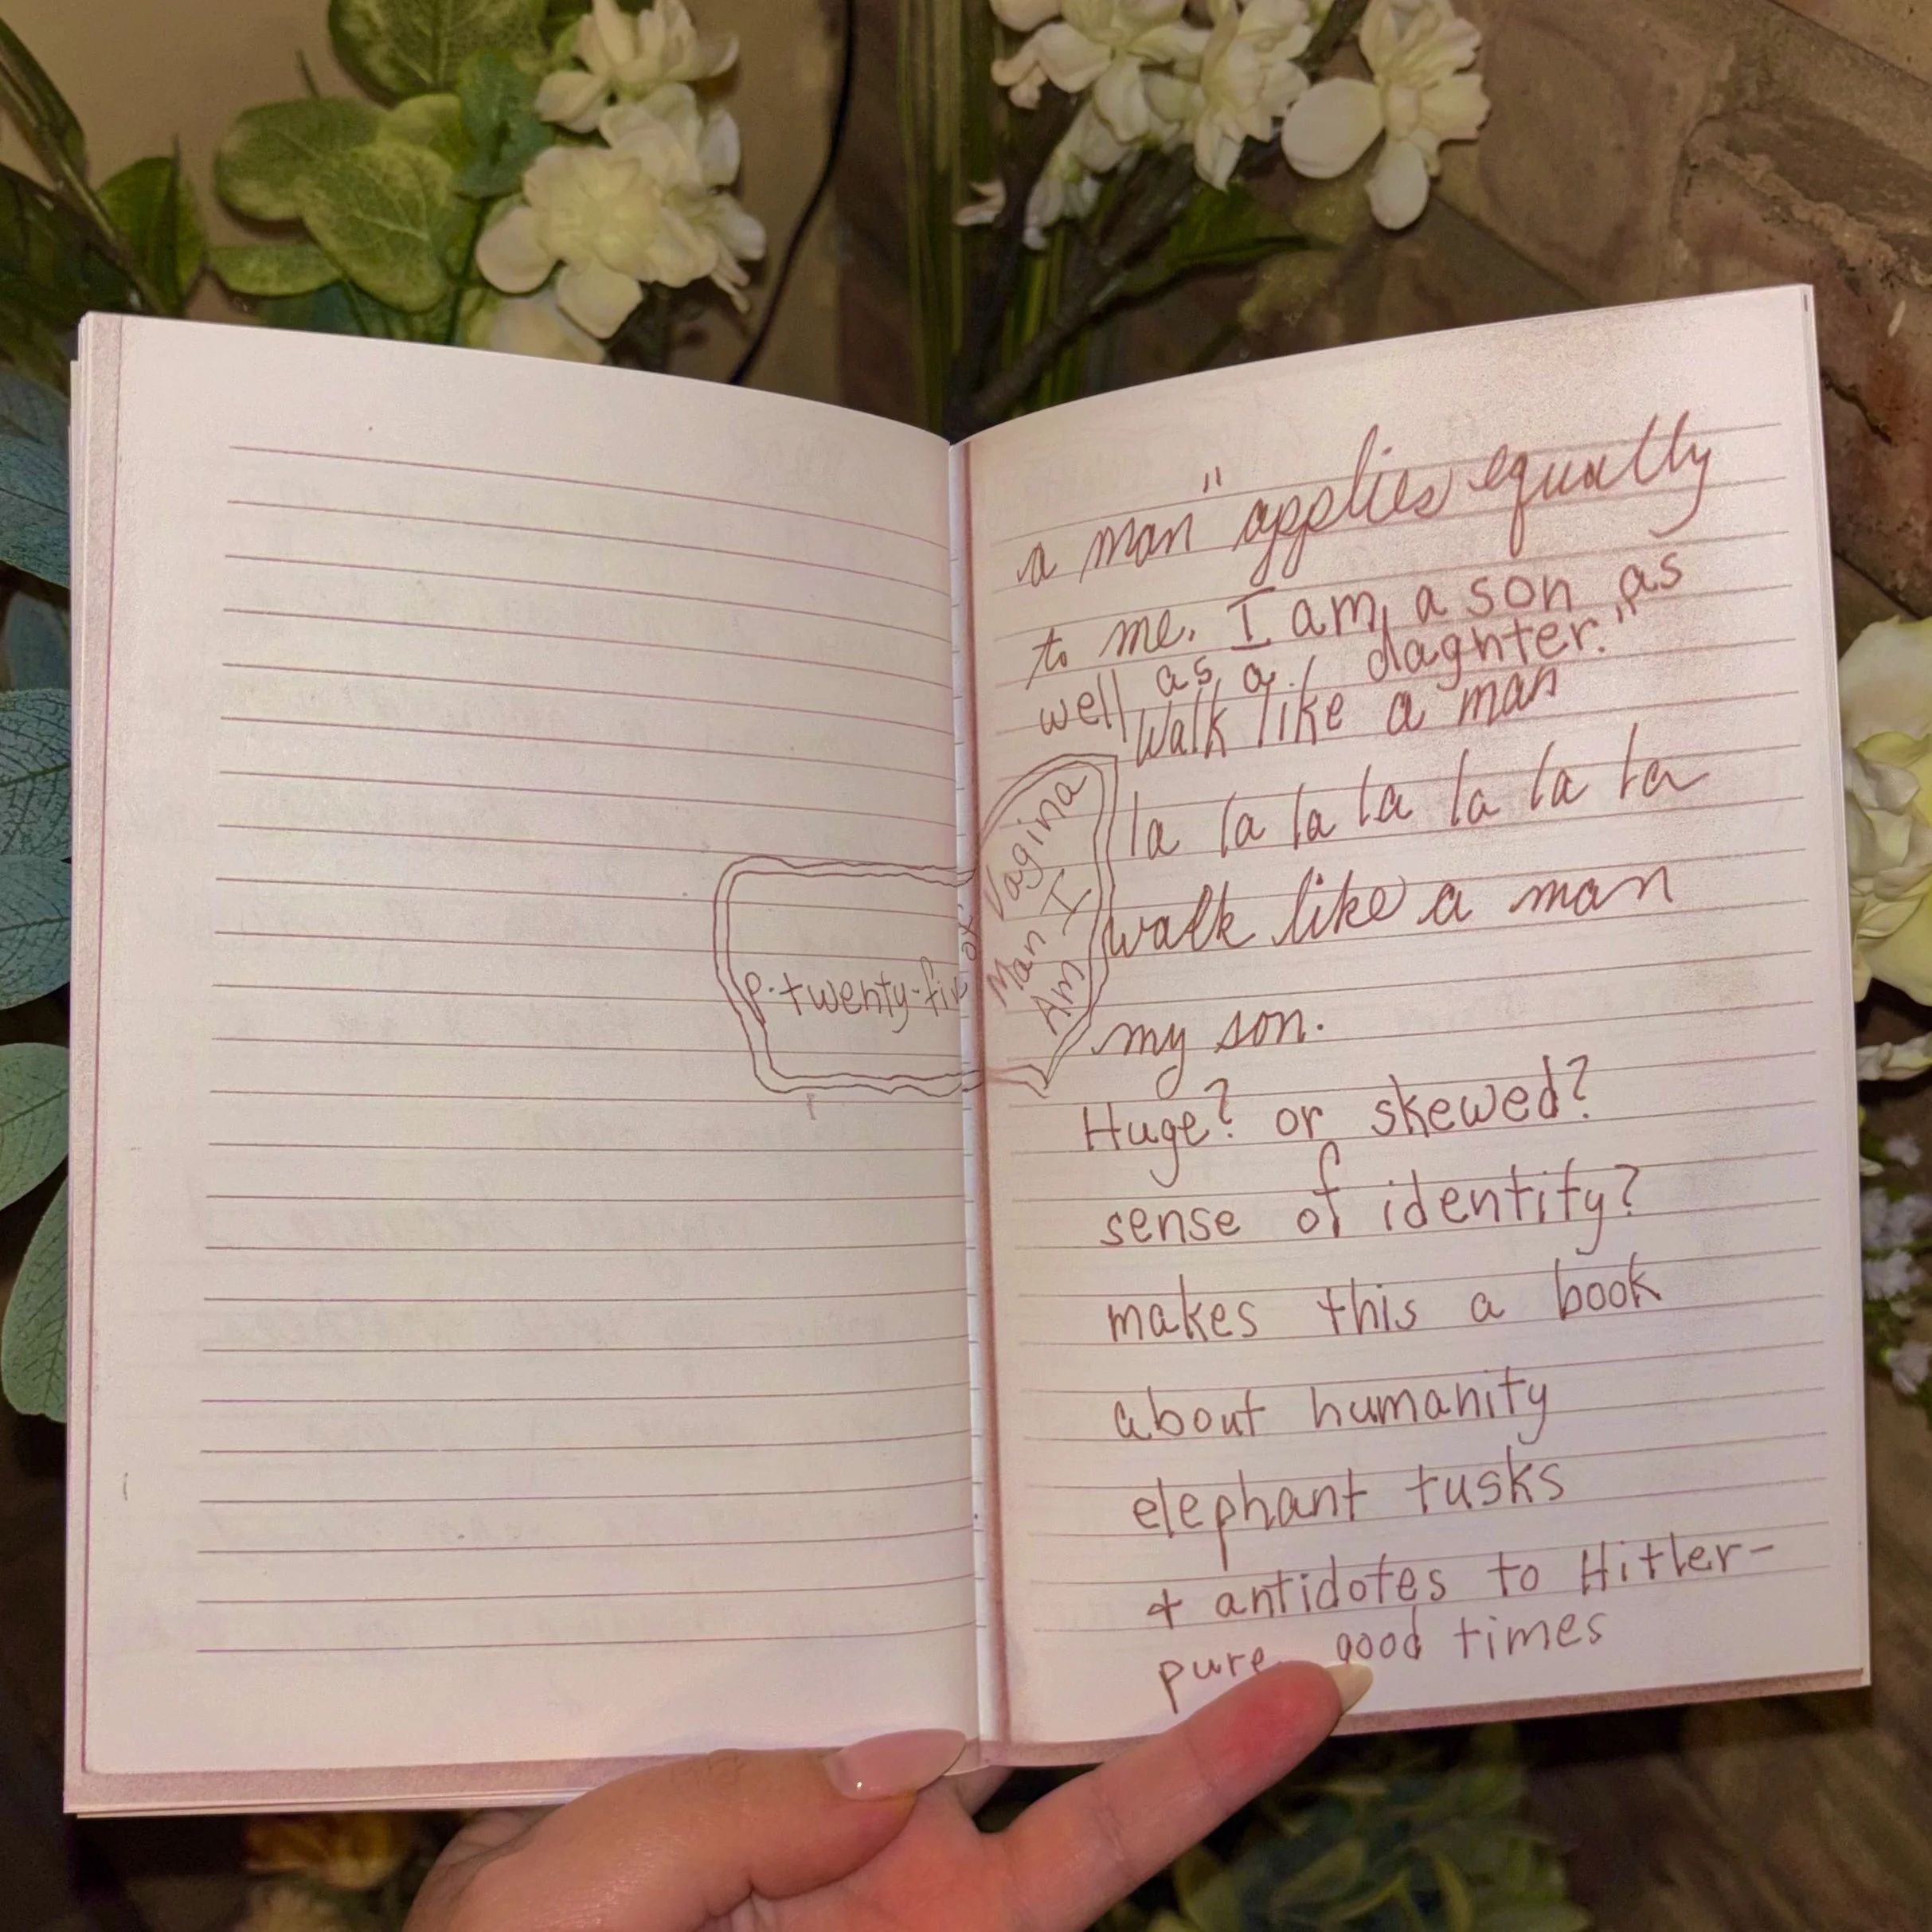 p. twenty-fiv
Vagina
Man I
Am
a man" applies equally
to me. I am a son as
well as a daghter."
Walk like a man
la la la la la la la
walk like a man
my son.
Huge? or skewed?
sense of identity?
makes this a book
about humanity
elephant tusks
+ antidotes to Hitler-
pure good times